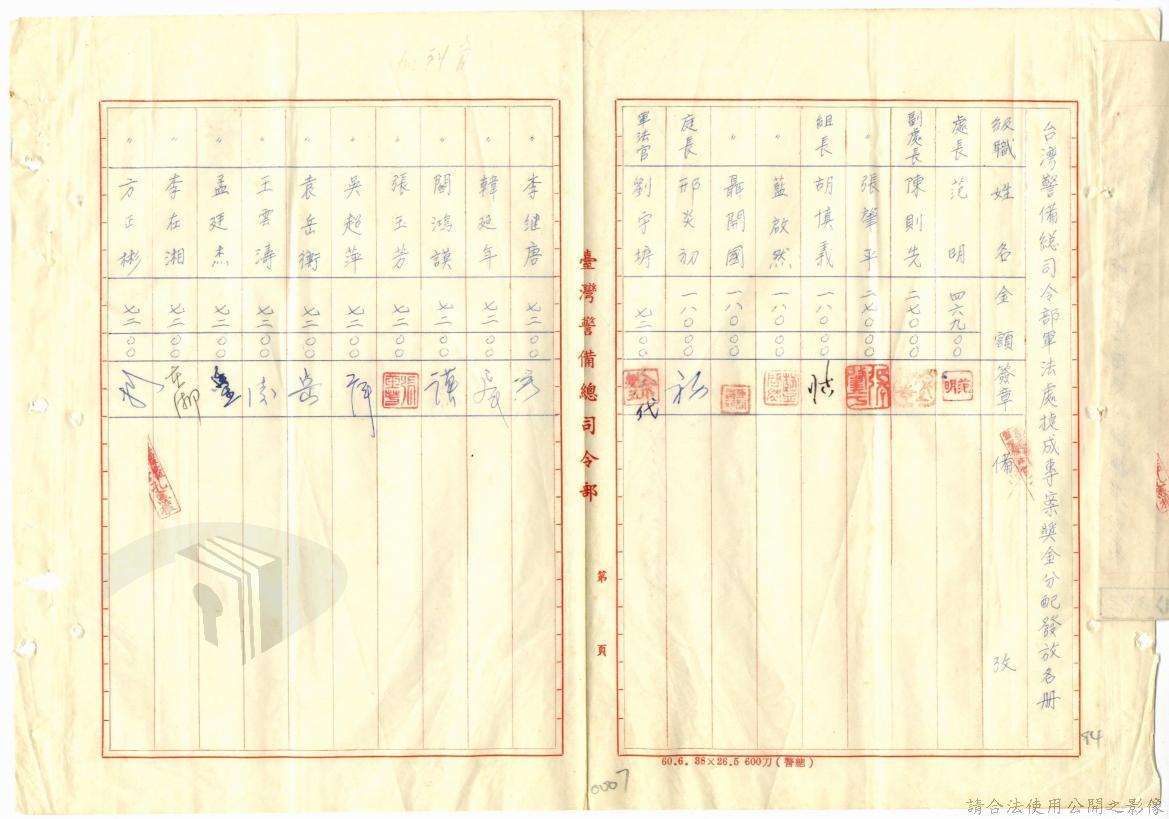 台灣警備總司令部軍法處捷成專案獎金分配發放名册
級職 姓名 金額 簽章 備攷
處長 范明 四六九〇〇
副處長 陳則先 二七〇〇〇
〃 張肇平 二七〇〇〇
組長 胡慎義 一八〇〇〇
〃 藍啟然 一八〇〇〇
〃 聶開國 一八〇〇〇
庭長 邢炎初 一八〇〇〇
軍法官 劉宇 七二〇〇 代
臺灣警備總司令部
第 頁
〃 李继唐 七二〇〇
〃 韓延年 七二〇〇
〃 閻鴻謨 七二〇〇
〃 張玉芳 七二〇〇
〃 吳超萍 七二〇〇
〃 袁岳衡 七二〇〇
〃 王雲濤 七二〇〇
〃 孟廷杰 七二〇〇
〃 李在湘 七二〇〇
〃 方正彬 七二〇〇
60.6. 38×26.5 600刀(警總)
84
0007
請合法使用公開之影像